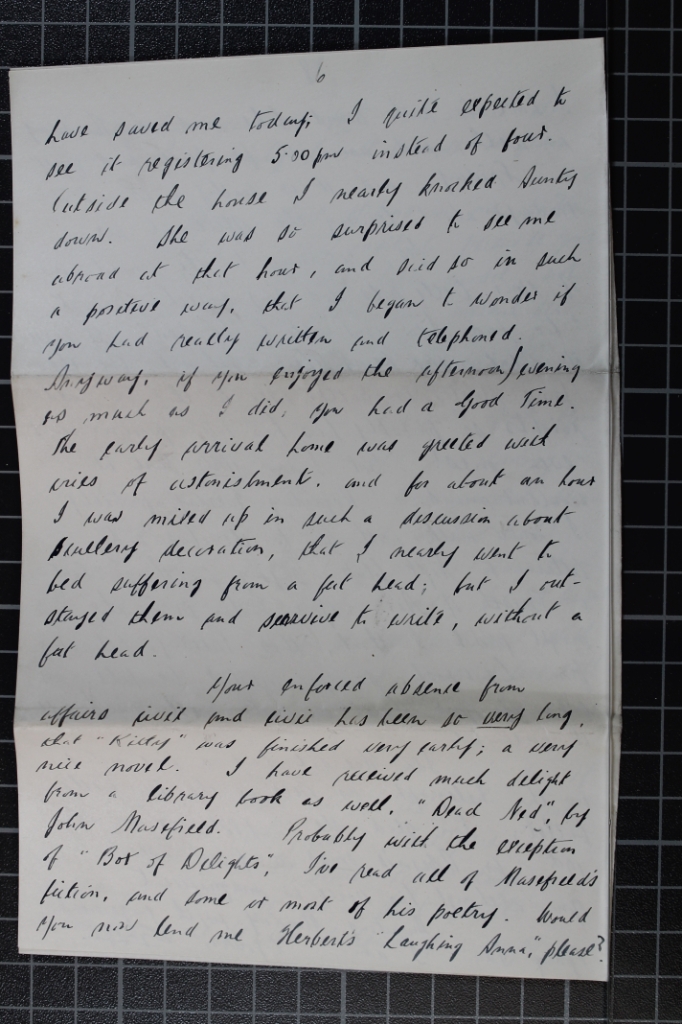 6
have saved me today; I quite expected to
see it registering 5.30 pm instead of four.
Outside the house I nearly knocked Aunty
down. She was so surprised to see me
abroad at that hour, and said so in such
a positive way, that I began to wonder if
you had really written and telephoned.
Anyway, if you enjoyed the afternoon/evening
as much as I did, you had a Good Time.
The early arrival home was greeted with
cries of astonishment, and for about an hour
I was mixed up in such a discussion about
decoration, that I nearly went to
bed suffering from a fat head; but I out-
stayed them and survive to write, without a
fat head.
Your enforced absence from
affairs civil and civic has been so very long,
that "Kitty" was finished very early; a very
nice novel. I have received much delight
from a library book as well, "Dead Ned", by
John Masefield. Probably with the exception
of "Box of Delights", I've read all of Masefield's
fiction, and some or most of his poetry. Would
you now lend me Herbert's "Laughing Anna," please?